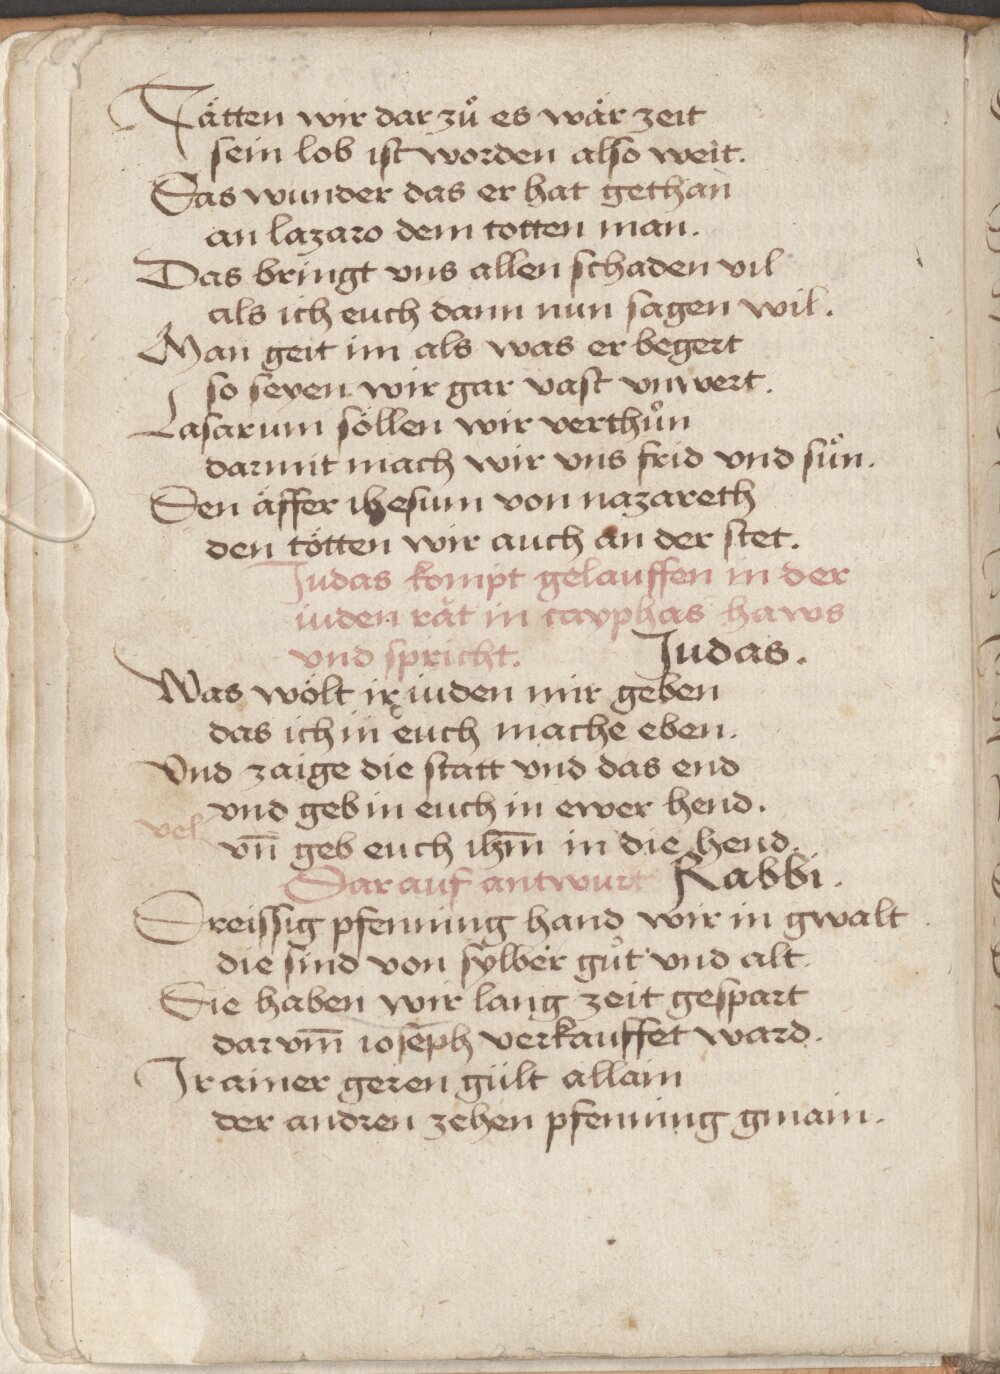 Tätten wir dar zuͦ es wär zeit
sein lob ist worden also weit.
Das wunder das er hat gethan
an lazaro dem totten man.
Das bringt vns allen schaden vil
als ich euch dann nun sagen wil.
Man geit im als was er begert
so seyen wir gar vast vnwert.
Lasarum söllen wir verthuͦn
darmit mach wir vns frid vnd suͦn.
Den äffer ihesum von nazareth
den tötten wir auch an der stet.
Judas kompt gelauffen in der
iuden rät in cayphas haws
vnd spricht. Judas.
Was wölt ir iuden mir geben
das ich in euch mache eben.
Vnd zaige die statt vnd das end
vnd geb in euch in ewer hend.
vel vn̄ geb euch ihm̄ in die hend.
Darauf antwurt Rabbi.
Dreissig pfenning hand wir in gwalt
die sind von sylber guͦt vnd alt.
Die haben wir lang zeit gespart
dar vm̄ ioseph verkauffet ward.
Ir ainer geren gült allain
der andren zehen pfenning gmain.